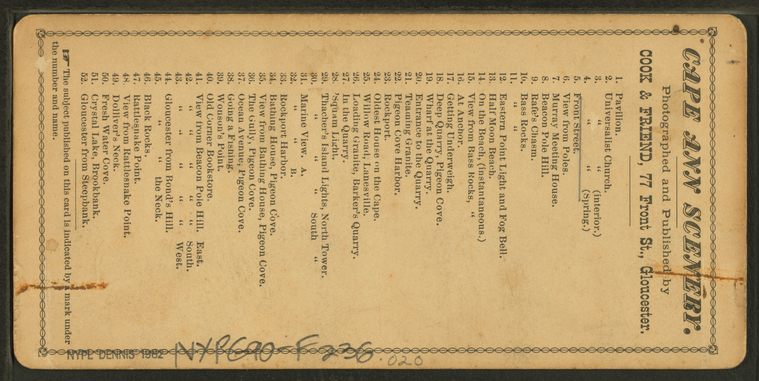 CAPE ANN SCENERY.
Photographed and Published by
COOK & FRIEND, 77 Front St., Gloucester.
1. Pavilion.
2. Universalist Church.
3. " " (interior.)
4. " " (Spring.)
5. Front Street.
6. View from Poles.
7. Murray Meeting House.
8. Beacon Pole Hill.
9. Rafe's Chasm.
10. Bass Rocks.
11. " "
12. Eastern Point Light and Fog Bell.
13. Half Moon Beach.
14. On the Beach, (instantaneous.)
15. View from Bass Rocks, "
16. At Anchor.
17. Getting Underweigh.
18. Deep Quarry, Pigeon Cove.
19. Wharf at the Quarry.
20. Entrance to the Quarry.
21. Teaming Granite.
22. Pigeon Cove Harbor.
23. Rockport.
24. Oldest House on the Cape.
25. Willow Road, Lanesville.
26. Loading Granite, Barker's Quarry.
27. In the Quarry.
28. 'Squam Light.
29. Thacher's Island Lights, North Tower.
30. " " " South "
31. Marine View. A.
32. " " B.
33. Rockport Harbor.
34. Bathing House, Pigeon Cove.
35. View from Bathing House, Pigeon Cove.
36. The Gully, Pigeon Cove.
37. Ocean Avenue, Pigeon Cove.
38. Going a Fishing.
39. Wonson's Point.
40. Old Corner Bookstore.
41. View from Beacon Pole Hill. East.
42. " " " " South.
43. " " " " West.
44. Gloucester from Bond's Hill.
45. " " the Neck.
46. Black Rocks.
47. Rattlesnake Point.
48. View from Rattlesnake Point.
49. Dolliver's Neck.
50. Fresh Water Cove.
51. Crystal Lake, Brookbank.
52. Gloucester from Steepbank.
☞ The subject published on this card is indicated by a mark under
the number and name.
NYPL DENNIS 1982
NYPG90-F236 .020